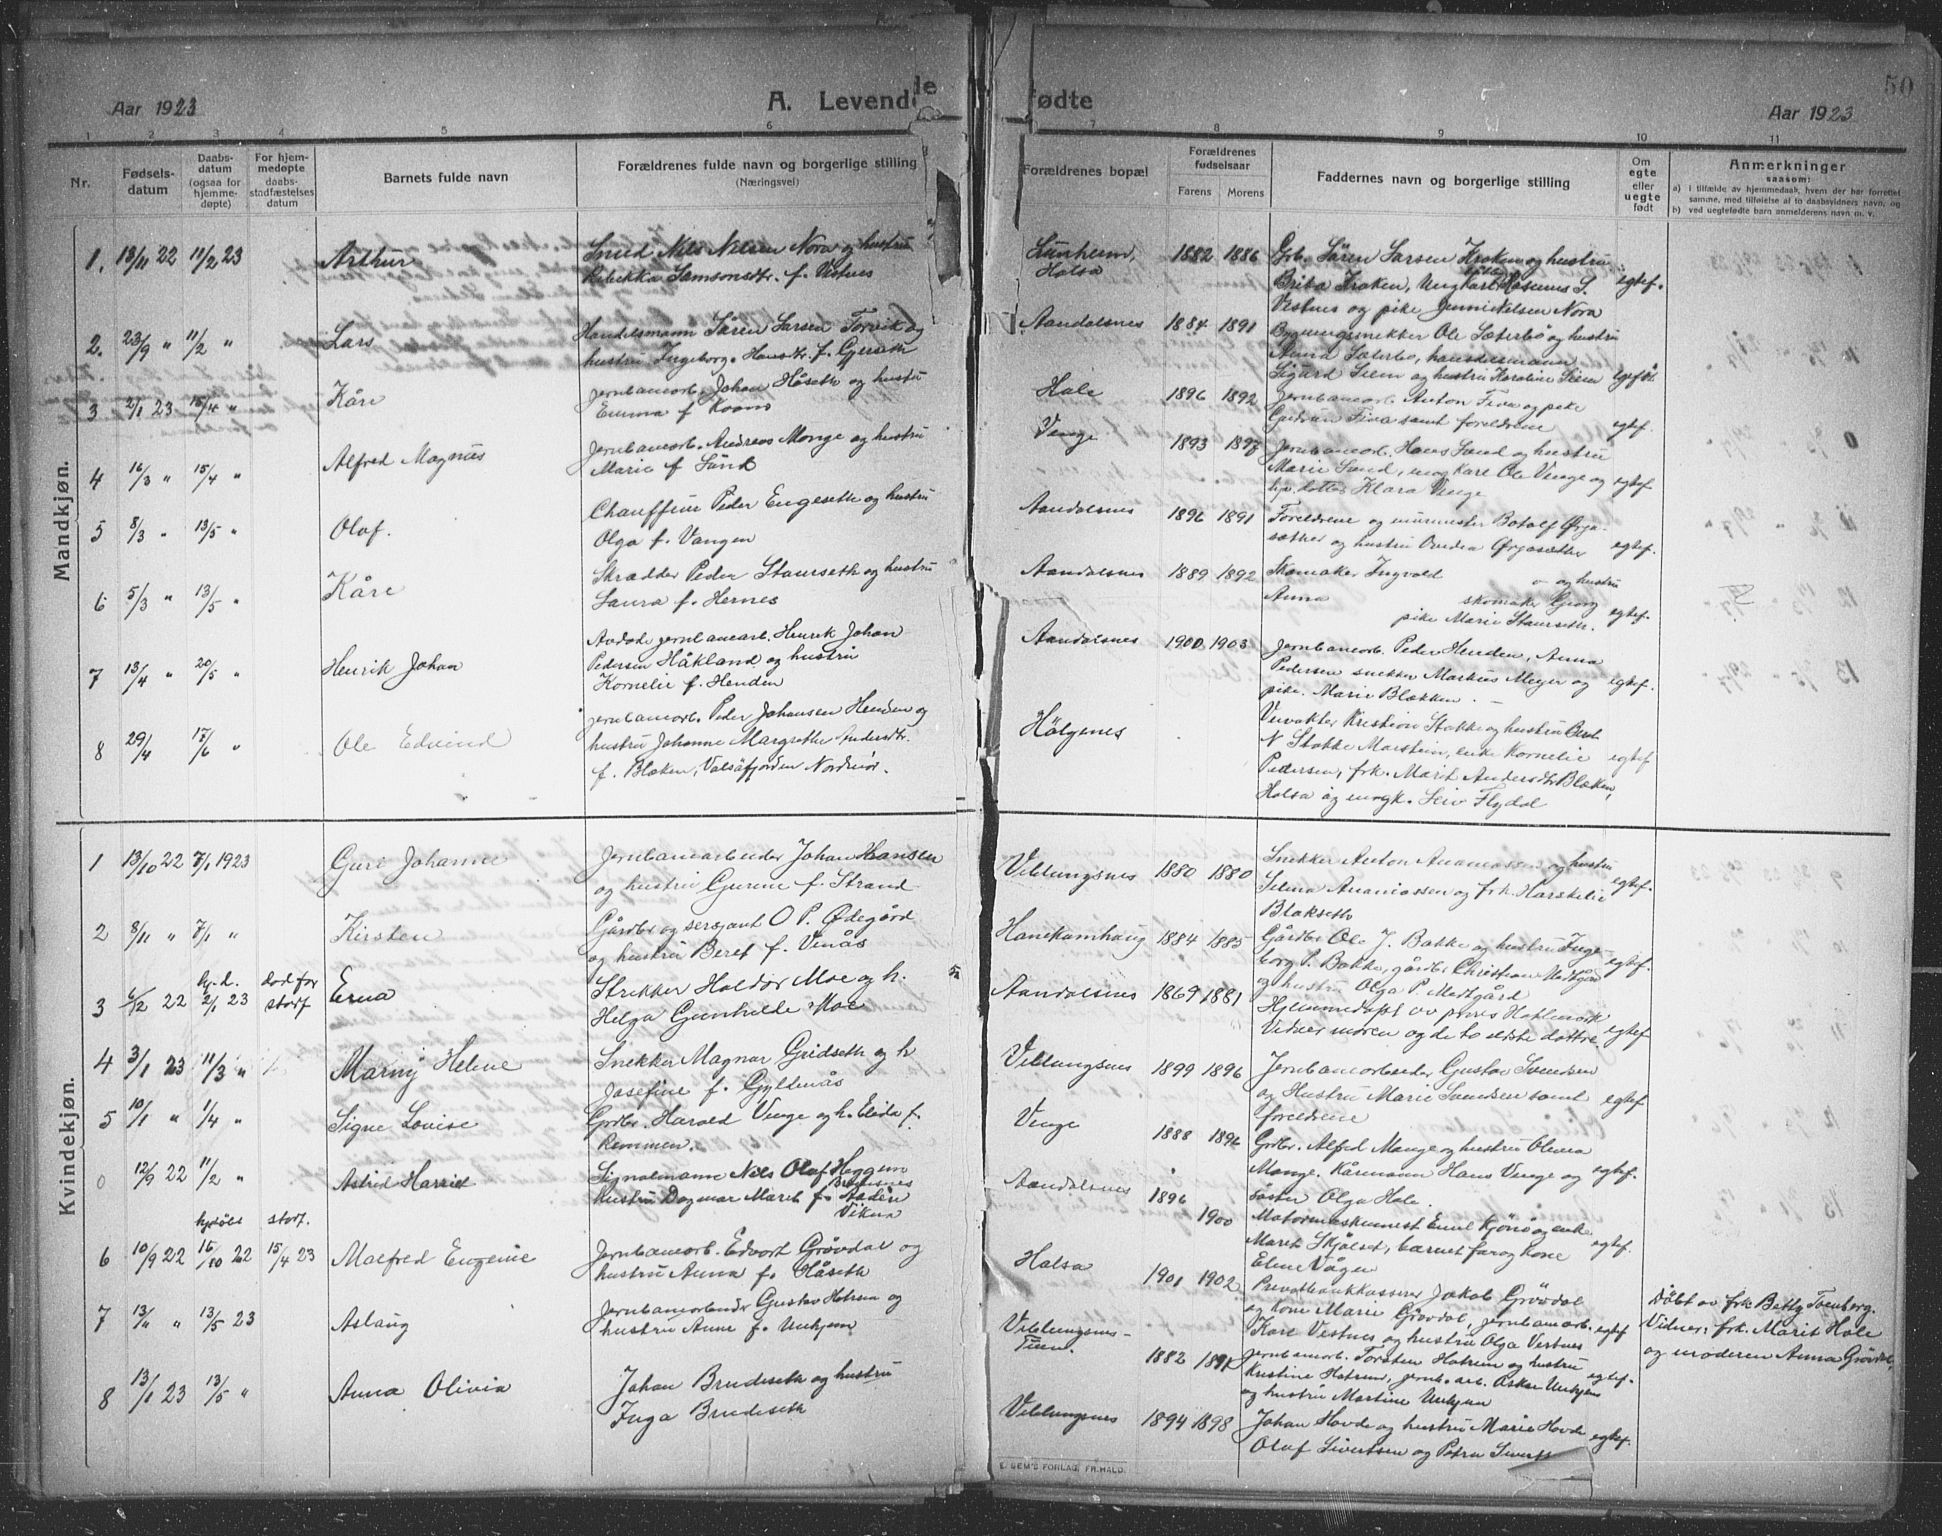 50
Aar 1923
A. Levende
fødte
Aar 1923
1 2 3 4 5 6 7 8 9 10 11
Nr.
Fødsels-
datum
Daabs-
datum
(ogsaa for
hjemme-
døpte)
For hjem-
medøpte
daabs-
stadfæstelses
datum
Barnets fulde navn
Forældrenes fulde navn og borgerlige stilling
(Næringsvei)
Forældrenes bopæl
Forældrenes
fødselsaar
Farens Morens
Faddernes navn og borgerlige stilling
Om
egte
eller
uegte
født
Anmerkninger
saasom:
a) i tilfælde av hjemmedaab, hvem der har forrettet
samme, med tilføielse af to daabsvidners navn, og
b) ved uegtefødte barn anmelderens navn m. v.
Mandkjøn.
1. 13/11 22 11/2 23 Arthur
Smed Nils Nilsen Nora og hustru
Rebekka Samsonsdtr. f. Vestnes
Halsa 1882 1886
Grb. Sören Larsen Kroken og hustru
Brita Kroken, Rasmus S.
Vestnes og pike Jenni Nilsen Nora
egtef.
2. 23/9 " 11/2 " Lars
Handelsmann Sören Larsen Torvik og
hustru Ingeborg Hansdtr. f. Gjerseth
Aandalsnes 1884 1891
Bygningssnekker Ole Sæterbö og hustru
Anna Sæterbö, handelsmann
Sigurd Seim og hustru Karoline Seim
3 2/1 23 15/4 " Kåre
Jernbanearb. Johan Håseth og hustru
Emma f. Kooms
Hole 1896 1892
Jernbanearb. Anton Fiva og pike
Gudrun Fiva samt foreldrene
egtef.
4 16/3 " 15/4 " Alfred Magnus
Jernbanearb. Andreas Monge og hustru
Marie f. Sand
Venge 1893
Jernbanearb. Hans Sand og hustru
Marie Sand, ungkarl Ole Venge og
Klara Venge
egtef
5 8/3 " 13/5 " Olaf.
Chauffeur Peder Engeseth og hustru
Olga f. Vangen
Aandalsnes 1896 1891
Foreldrene og murmester Botolf Ørja-
sæther og hustru Ovedia Ørjasæther
egtef.
6 5/3 " 13/5 " Kåre
Skrædder Peder Staurseth og hustru
Laura f. Hernes
Aandalsnes 1889 1892
Skomaker Ingvald og hustru
Anna skomaker Georg
pike Marie Staurseth.
egtef.
7 13/4 " 20/5 " Henrik Johan
Avdöde jernbanearb. Henrik Johan
Pedersen Håkland og hustru
Kornelie f. Henden
Aandalsnes 1900 1903
Jernbanearb. Peder Henden, Anna
Pedersen snekker Markus Meyer og
pike Marie Blækken.
egtef.
8 29/4 17/6 " Ole Edvind
Jernbanearb. Peder Johansen Henden og
hustru Johanne Margrethe Andersdtr.
f. Blæken, Valsöfjorden Nordmör.
Hölgenes
Veivokter Kristian Stokke og hustru
N Stokke Marstein, enke Kornelie
Pedersen, frk. Marit Andersdtr Blæken,
Halsa og ungk. Leiv Flydal
egtef
Kvindekjøn.
1 13/10 22 7/1 1923 Guri Johanne
Jernbanearbeider Johan Hansen
og hustru Gurine f. Strand
Veblungsnes 1880 1880
Snekker Anton Ananiassen og hustru
Selma Ananiassen og frk. Harskelie
Blakseth
egtef.
2 8/11 " 7/1 " Kirsten
Gårdbr og sersjant O P. Ødegård
og hustru Beret f. Venås
Hanekamhaug 1884 1885
Gårdbr Ole J. Bakke og hustru Inge-
borg P. Bakke, gårdbr Christian Medtgård
og hustru Olga P. Medtgård
egtef.
3 6/12 22 hj.d. 2/1 23 död for
stadf Erna
Strekker Haldor Moe og h.
Helga Gunhilde Moe
Aandalsnes 1869 1881
Hjemmedöpt av prest
Vidner moren og de to eldste dottre
egtef
4 3/1 23 11/3 " Marny Helene
Snekker Magnar Gridseth og h
Josefine f. Gyldenås
Veblungsnes 1899 1896
Jernbanearbeider Gustav Svendsen
og Hustru Marie Svendsen samt
foreldrene
egtef
5 10/1 " 1/4 " Signe Lovise
Grdbr. Harald Venge og h. Elida f.
Remmen.
Venge 1888 1896
Grdbr. Alfred Monge og hustru Olivia
Monge. Kårmann Hans Venge og
söster Olga Hole.
egtef.
0 12/9 22 11/2 " Astrid Harriet
Signalmann Nils Olaf Heggem
hustru Dagmar Marit f.
Vikna
Aandalsnes 1896 1900
Motormaskinist Emil og enke
Marit Skjölset, barnets far og kone
Eline Vågen
egtef.
6 10/9 22 hjdöbt 15/10 22 stadf. 15/4 23 Malfred Eugenie
Jernbanearb. Edvart Grövdal og
hustru Anna f. Håseth
Halsa 1901 1902
Privatbankkasserer Jakob Grövdal
og kone Marie Grövdal, jernbanearb.
Karl Vestnes og hustru Olga Vestnes
egtef
Döbt av frk Betty Tvenberg.
Vidner: frk. Marit Hole
og moderen Anna Grövdal.
7 13/11 " 13/5 23 Aslaug
Jernbanearbeider Gustav Hatrem og
hustru Anne f. Unhjem
Veblungsnes-
1882
Jernbanearb. Torsten Hatrem og hustru
Kristine Hatrem, jernb. arb. Oskar Unhjem
og hustru Martine Unhjem
egtef.
8 13/1 23 13/5 " Anna Olivia
Johan Brudeseth og hustru
Inga Brudeseth
Veblungsnes 1894 1898
Johan Hovde og hustru Marie Hovde
Olaf Sivertsen og Petra
egtef.
E. SEM'S FORLAG, FR.HALD.